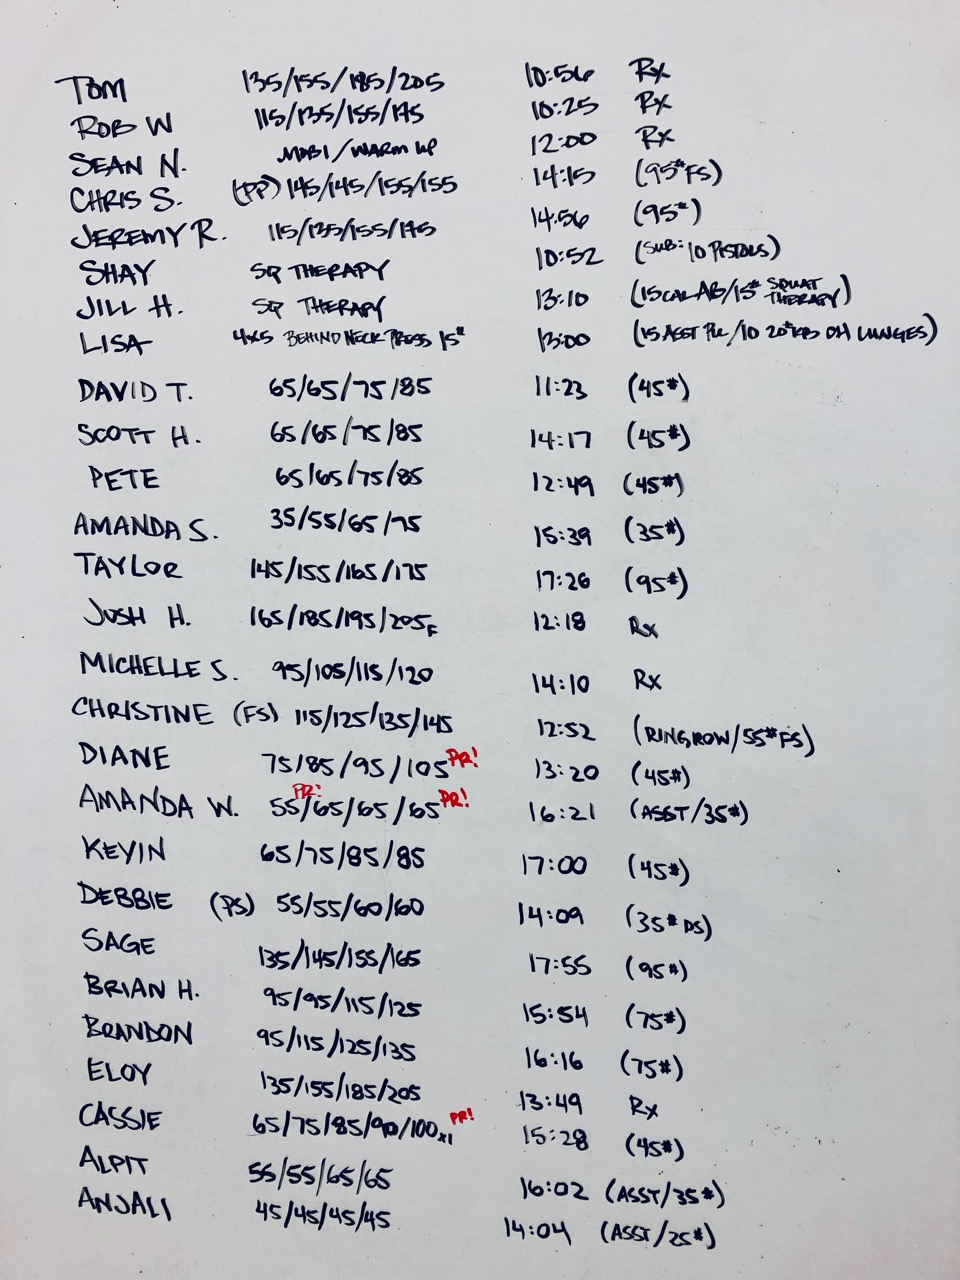 TOM 135/155/185/205 10:56 Rx
ROB W 115/135/155/175 10:25 Rx
SEAN N. MOBI/WARM UP 12:00 Rx
CHRIS S. (PP) 145/145/155/155 14:15 (95# FS)
JEREMY R. 115/135/155/175 14:56 (95#)
SHAY SQ THERAPY 10:52 (SUB: 10 PISTOLS)
JILL H. SQ THERAPY 13:10 (15 CAL AB/15# SQUAT THERAPY)
LISA 4x5 BEHIND NECK PRESS 15# 13:00 (15 ASST PU/10 20# KB OH LUNGES)
DAVID T. 65/65/75/85 11:23 (45#)
SCOTT H. 65/65/75/85 14:17 (45#)
PETE 65/65/75/85 12:49 (45#)
AMANDA S. 35/55/65/75 15:39 (35#)
TAYLOR 145/155/165/175 17:26 (95#)
JOSH H. 165/185/195/205F 12:18 Rx
MICHELLE S. 95/105/115/120 14:10 Rx
CHRISTINE (FS) 115/125/135/145 12:52 (RING ROW/55# FS)
DIANE 75/85/95/105 PR! 13:20 (45#)
AMANDA W. 55/PR! 65/65/65 PR! 16:21 (ASST/35#)
KEVIN 65/75/85/85 17:00 (45#)
DEBBIE (PS) 55/55/60/60 14:09 (35# PS)
SAGE 135/145/155/165 17:55 (95#)
BRIAN H. 95/95/115/125 15:54 (75#)
BRANDON 95/115/125/135 16:16 (75#)
ELOY 135/155/185/205 13:49 Rx
CASSIE 65/75/85/90/100x1 PR! 15:28 (45#)
ALPIT 55/55/65/65 16:02 (ASST/35#)
ANJALI 45/45/45/45 14:04 (ASST/25#)